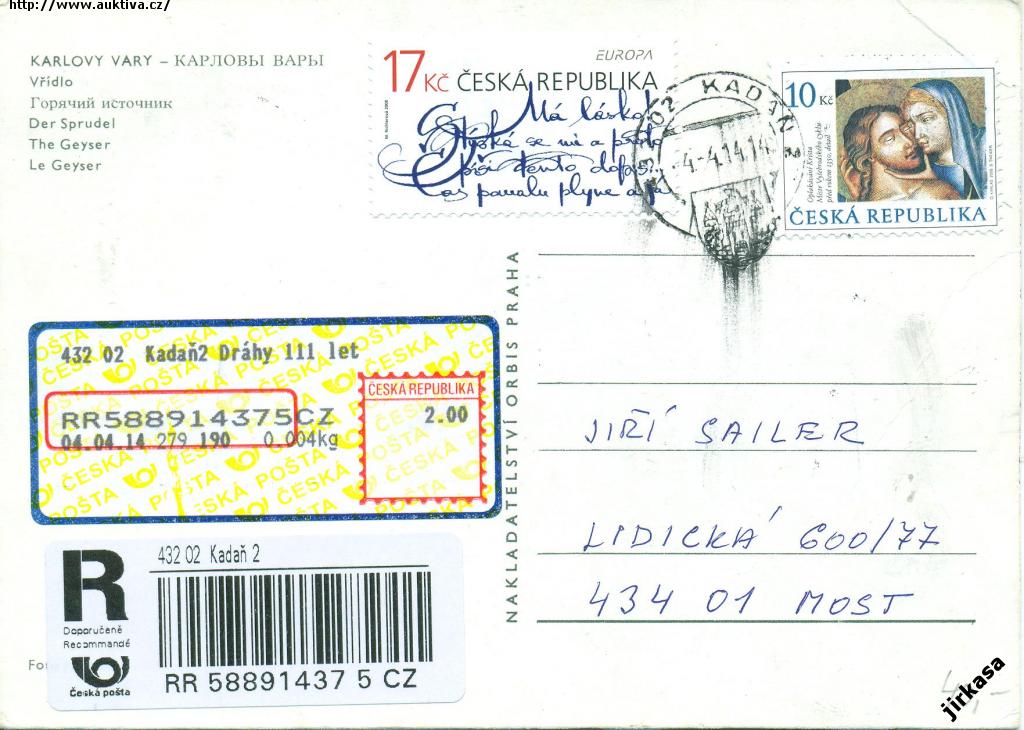 http://www.auktiva.cz/
KARLOVY VARY – КАРЛОВЫ ВАРЫ
Vřídlo
Горячий источник
Der Sprudel
The Geyser
Le Geyser
17 Kč ČESKÁ REPUBLIKA
EUROPA
Má lásko
se mi a
tento dopis
čas pomalu plyne a já
02 KADAŇ 2
-4.-4.14.14
10 Kč
Oplakávání Krista
Mistr Vyšebrodského cyklu
před rokem 1350, detail
ČESKÁ REPUBLIKA
NAKLADATELSTVÍ ORBIS PRAHA
432 02 Kadaň2 Dráhy 111 let
RR588914375CZ
04.04.14 279 190 0.004kg
ČESKÁ REPUBLIKA
2.00
ČESKÁ POŠTA
JIŘÍ SAILER
LIDICKÁ 600/77
434 01 MOST
R
432 02 Kadaň 2
Doporučeně
Recommandé
Česká pošta
RR 58891437 5 CZ
Fo
jirkasa